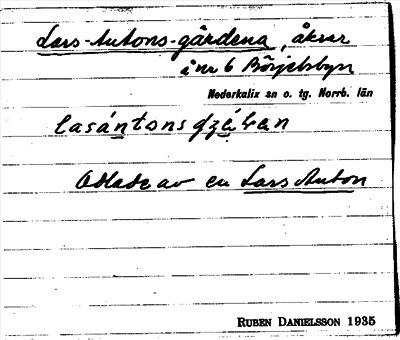 Lars-Antons-gärdena, åkrar
i nr 6 Börjelsbyn
Nederkalix sn o. tg. Norrb. län
Odlade av en Lars Anton
RUBEN DANIELSSON 1935